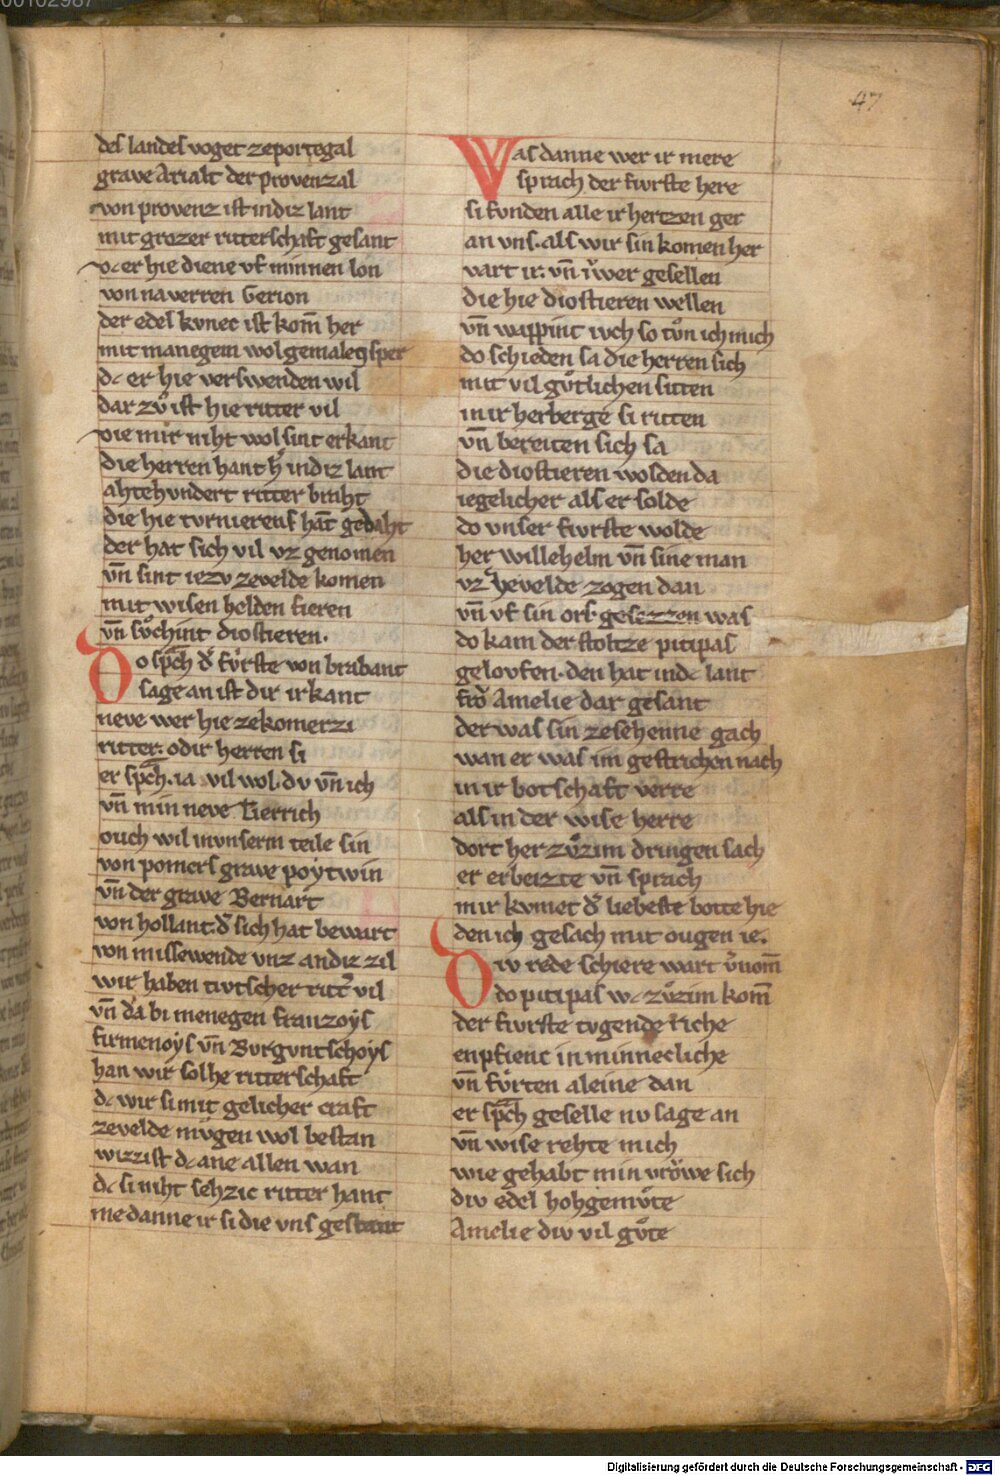 00102987
47
des landes voget zeportegal
grave Arialt der provenzal
von provenz ist indiz lant
mit grozer ritterschaft gesant
dc er hie diene vf minnen lon
von naverren Gerion
der edel kvnec ist kom̄ her
mit manegem wol gemaletē sper
dc er hie verswenden wil
dar zvͦ ist hie ritter vil
die mir niht wol sint erkant
die herren hant h̾ indiz lant
ahtehvndert ritter braht
die hie tvrnierens hāt gedaht
der hat sich vil vz genomen
vn̄ sint iezv zevelde komen
mit wisen helden fieren
vn̄ svͦchint diostieren.
Do sp̄ch d̾ fvrste von brabant
sage an ist dir irkant
neve wer hie zekomerzi
ritter. odir herren si
er sp̄ch. ia vil wol. dv vn̄ ich
vn̄ min neve Tierrich
ouch wil invnserm teile sin
von pomers grave poytwin
vn̄ der grave Bernart
von hollant. d̾ sich hat bewart
von missewende vnz an diz zil
wir haben tivtscher ritt̾ vil
vn̄ da bi menegen franzoys
firmenoys vn̄ Bvrgvntschoys
han wir solhe ritterschaft
dc wir si mit gelicher craft
zevelde mvgen wol bestan
wizzist dc ane allen wan
dc si niht sehzic ritter hant
me danne ir si die vns gestant
Was danne wer ir mere
sprach der fivrste here
si fvnden alle ir hertzen ger
an vns. als wir sin komen her
vart ir. vn̄ iwer gesellen
die hie diostieren wellen
vn̄ wappint ivch so tvͦn ich mich
do schieden sa die herren sich
mit vil gvͤtlichen sitten
in ir herberge si ritten
vn̄ bereiten sich sa
die diostieren wolden da
iegelicher als er solde
do vnser fivrste wolde
her willehelm vn̄ sine man
vz hevelde zogen dan
vn̄ vf sin ors gesezzen was
do kam der stoltze pitipas
gelovfen. den hat indc lant
froͮ Amelie dar gesant
der was sin zesehenne gach
wan er was im gestrichen nach
in ir botschaft verre
als in der wise herre
dort her zvͦzim dringen sach
er erbeizte vn̄ sprach
mir kvmet d̾ liebeste botte hie
den ich gesach mit ougen ie.
Div rede schiere wart v̾nom̄
do pitipas wc zvͦzim kom̄
der fivrste tvgende riche
enpfienc in minnecliche
vn̄ fvͦrten aleine dan
er sp̄ch geselle nv sage an
vn̄ wise rehte mich
wie gehabt min vroͮwe sich
div edel hohgemvͦte
Amelie div vil gvͦte
Digitalisierung gefördert durch die Deutsche Forschungsgemeinschaft - DFG